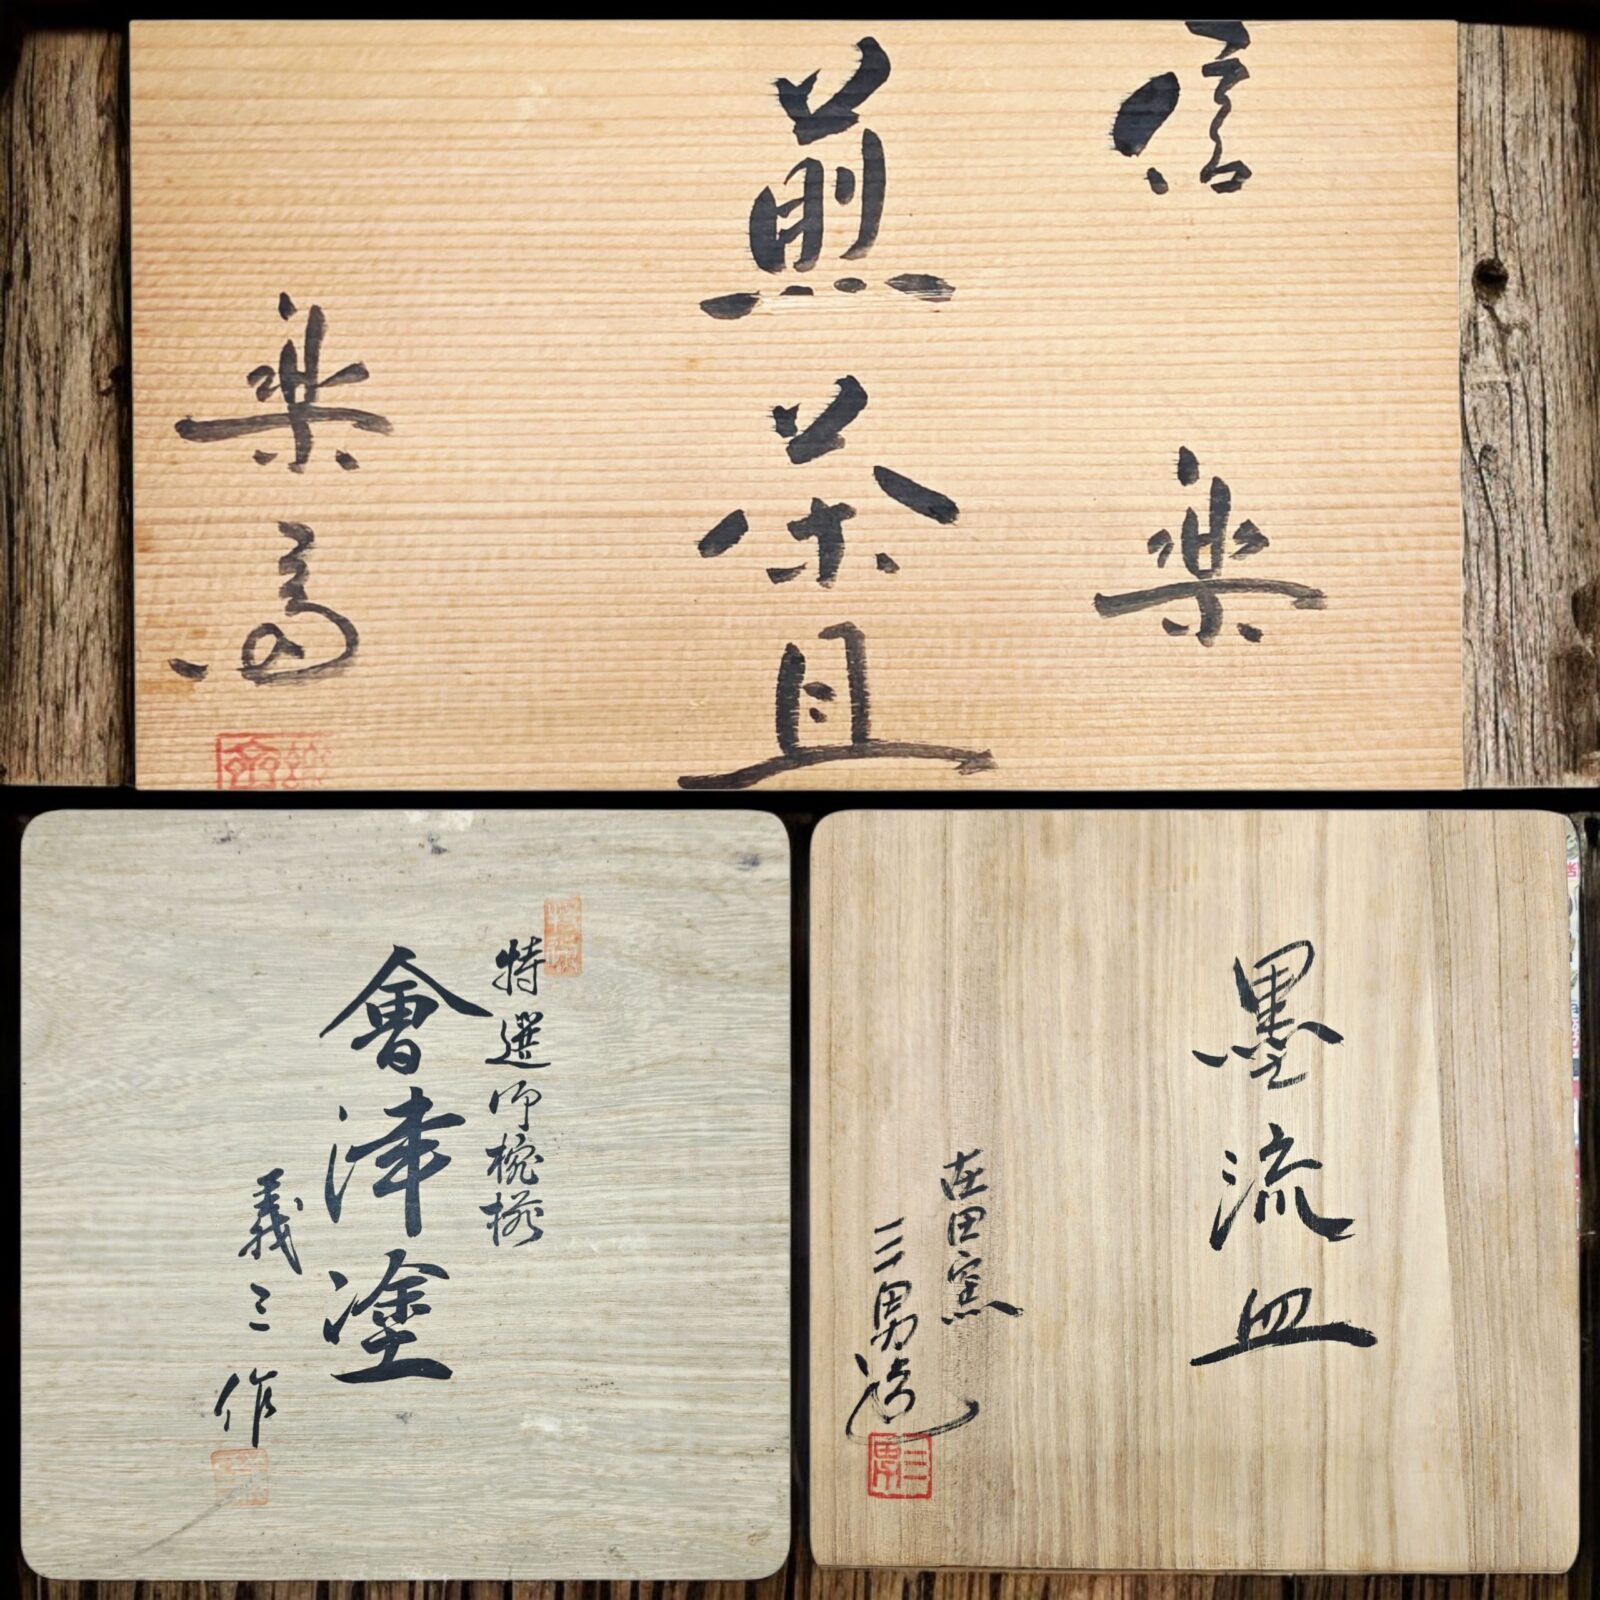 信楽
煎茶具
楽斎
特選御椀揃
會津塗
義三作
墨流皿
在田窯
三男造
三男